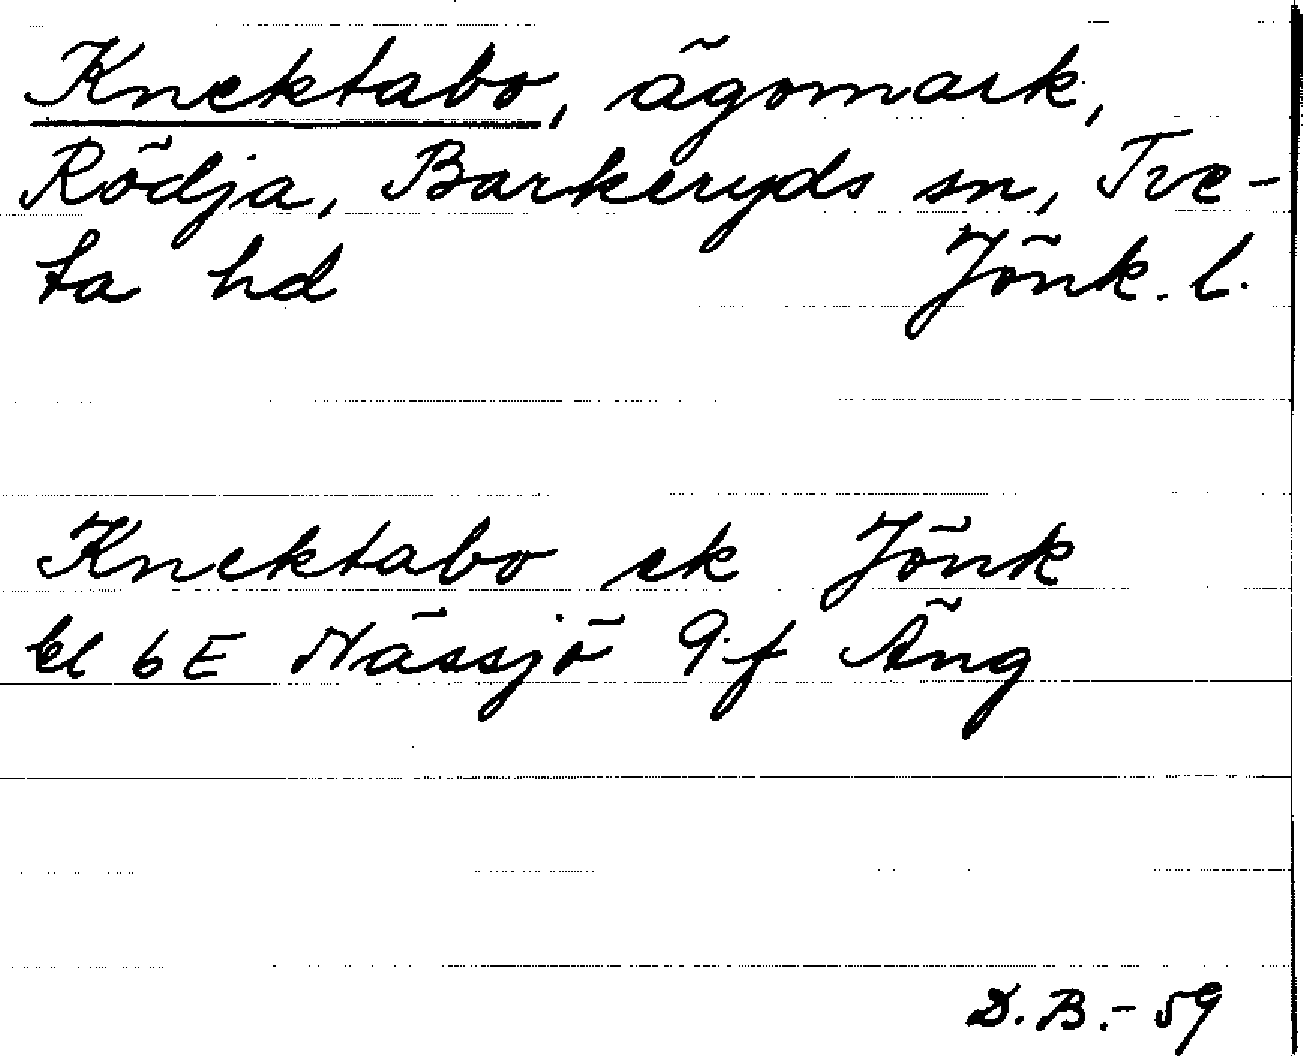 Knektabo, ägomark,
Rödja, Barkeryds sn, Tve-
ta hd Jönk. l.
Knektabo ek Jönk
bl 6E Nässjö 9f Äng
D.B.-59